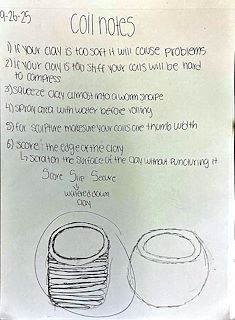 9-26-25
Coil notes
1) if your clay is too soft it will cause problems
2) if your clay is too stiff your coils will be hard
to compress
3) squeeze clay almost into a worm shape
4) spray area with water before rolling
5) for sculpture makesure your coils one thumb width
6) score: the edge of the clay
↳ scratch the surface of the clay without puncturing it
Score Slip Secure
watered down
clay